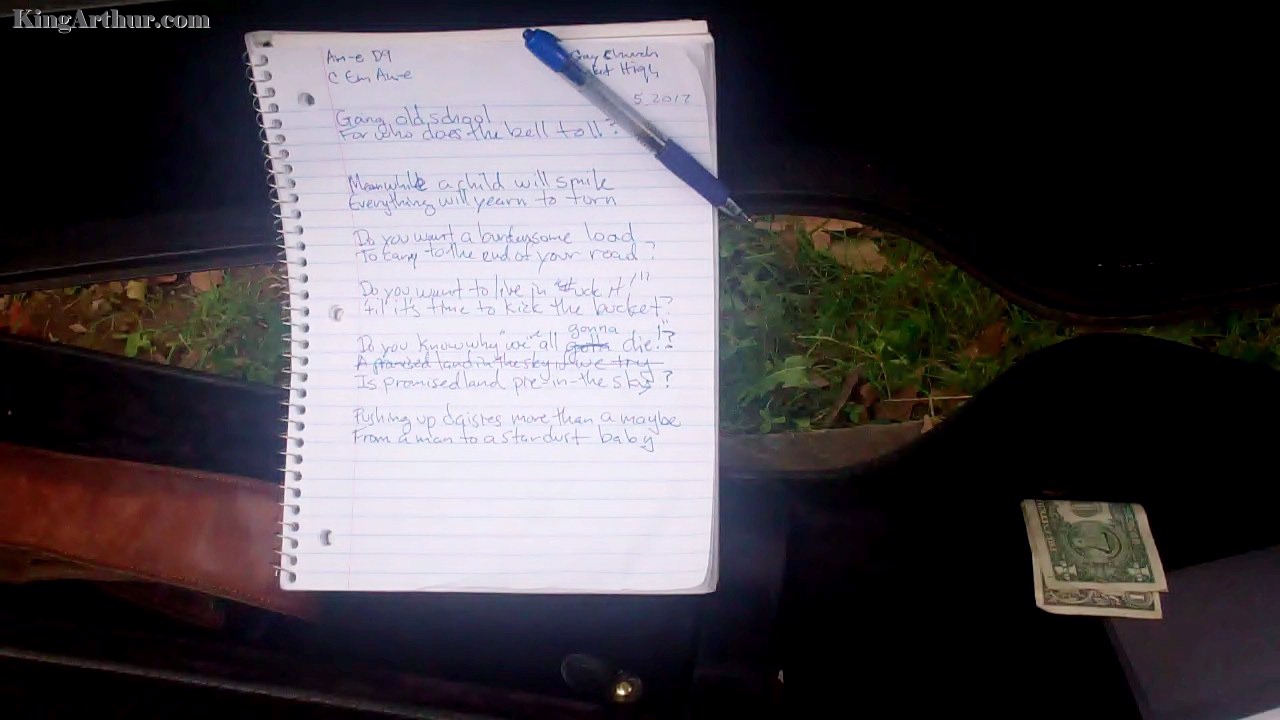 KingArthur.com
Am-e D9
C Em Am-e
Church
High
5 2017
Gang old school
For who does the bell toll?
Meanwhile a child will smile
Everything will yearn to turn
Do you want a burdensome load
To carry to the end of your road?
Do you want to live in "fuck it!"
'til it's time to kick the bucket?
Do you know why "we" all gonna die!?
A promised land in the sky if we try
Is promised land pie-in-the sky?
Pushing up daisies more than a maybe
From a man to a stardust baby